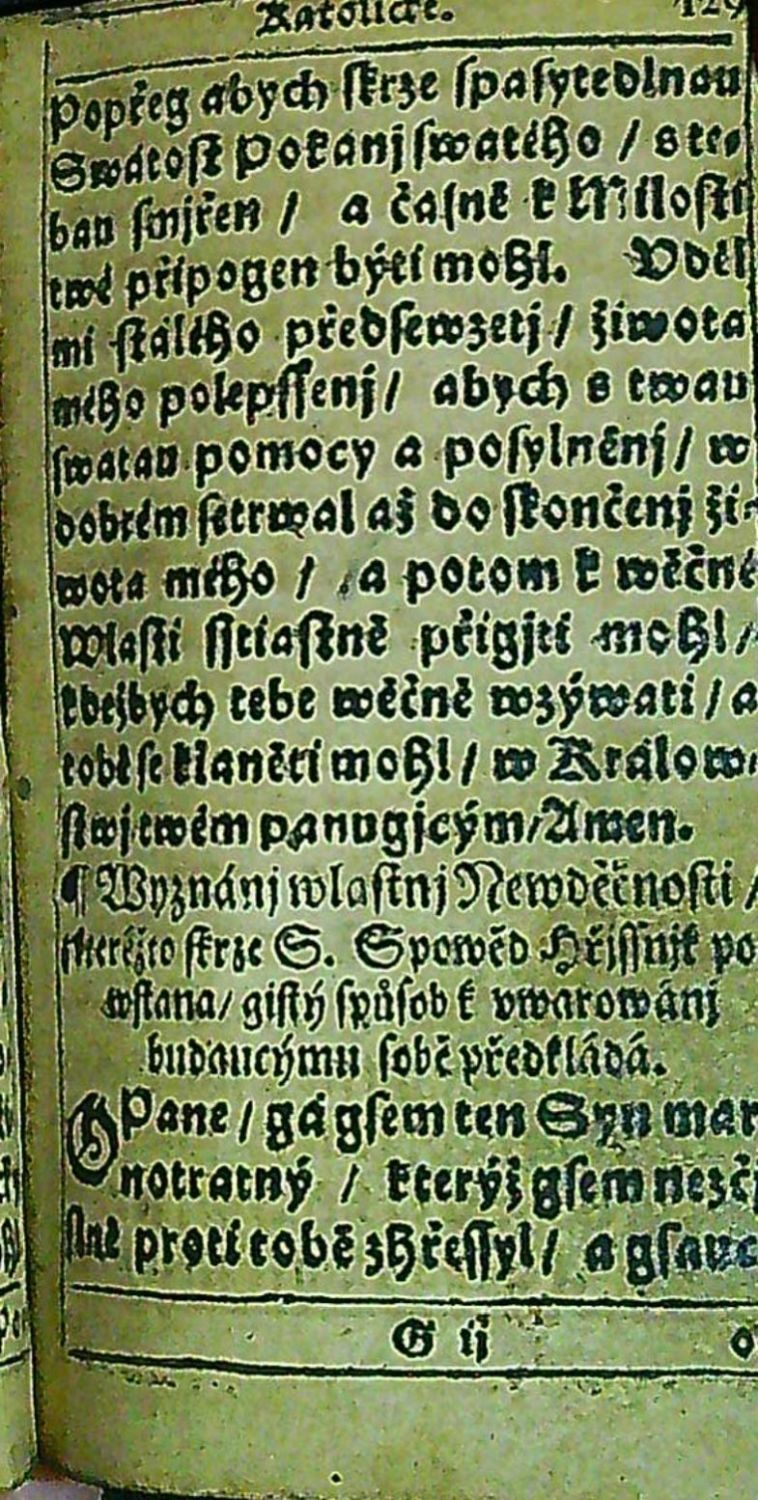 Katolické. 129
Popřeg abych ſkrze ſpaſytedlnau
Swátoſt Pokánj ſwatého / s te⸗
bau ſmjřen / a čaſně k Miloſti
twé připogen býti mohl. Vděl
mi ſtálého předſewzetj / života
mého polepſſenj / abych s twau
ſwatau pomocy a poſylněnj / w
dobrém ſetrwal až do ſkončenj ži⸗
wota mého / a potom k wěčné
Wlaſti ſſtiaſtně přigjti mohl /
kdežbych tebe wěčně wzýwati / a
tobě ſe klaněti mohl / w Králow⸗
ſtwj twém panugjcým / Amen.
¶ Wyznánj wlaſtnj Newděčnoſti /
kteréžto ſkrze S. Spowěd Hřjſſnjk po
wſtana / giſtý ſpůſob k vwarowánj
budaucýmu ſobě předkládá.
O Pane / gá gſem ten Syn mar
notratný / kterýž gſem nezčj
ſlně proti tobě zhřeſſyl / a gſauc
G ij o